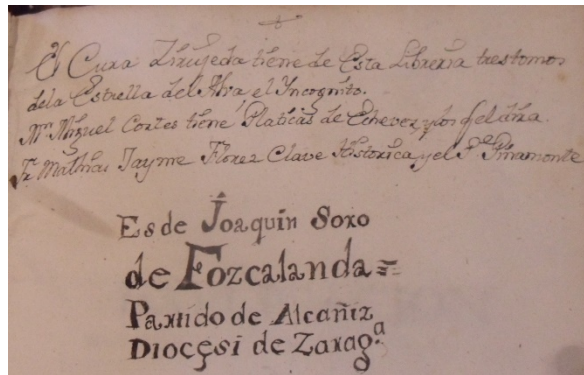 El Cura Zirujeda tiene de Esta Libreria tres tomos
dela Estrella del Alva, el Incognito.
Mn. Miguel Cortes tiene Platicas de Echevez, y los del Alva.
Fr. Mathias Jayme Florez Clave Historica, y el Pe. Pinamonte
Es de Joaquin Soro
de Fozcalanda =
Partido de Alcañiz
Dioçesi de Zarag.ª